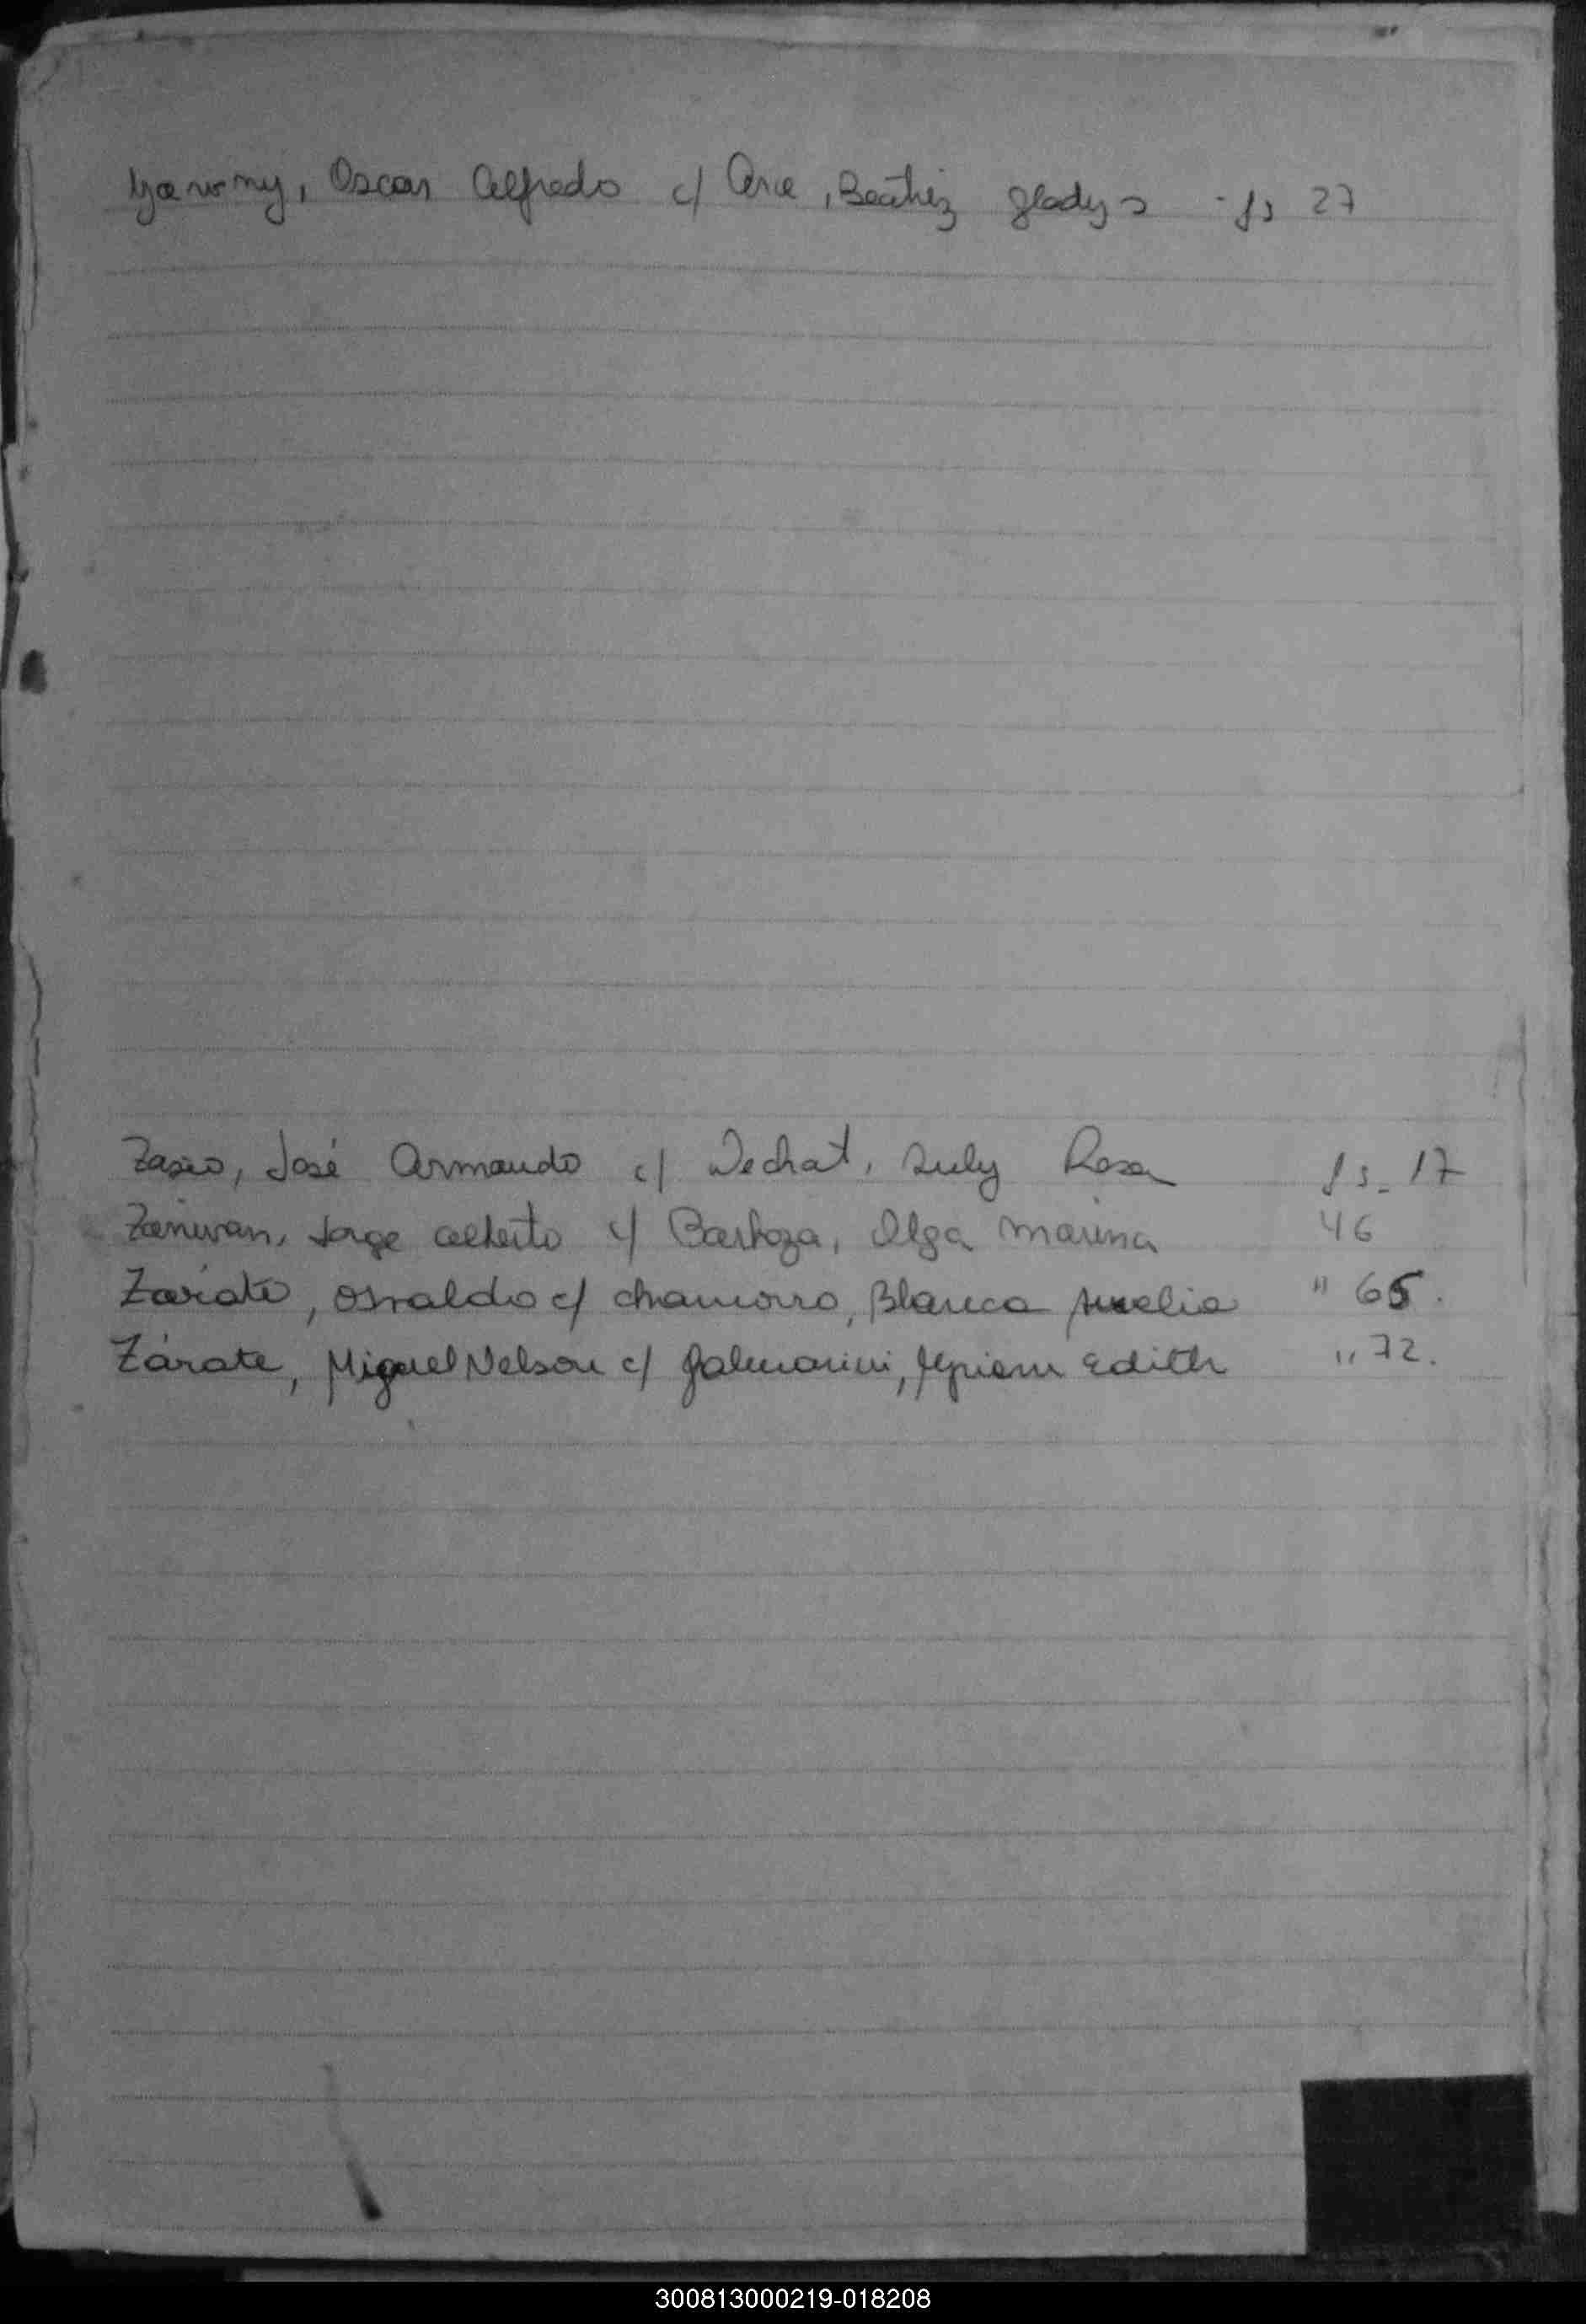 Yaworny, Oscar Alfredo c/ Arce, Beatriz Gladys - fs 27
José Armando c/ Dechat, Suly Rosa fs. 17
Jorge Alberto c/ Barboza, Olga Marina 46
Zárate, Osvaldo c/ Chamorro, Blanca Amelia " 65.
Zárate, Miguel Nelson c/ Palmarini, Myriam Edith " 72.
300813000219-018208